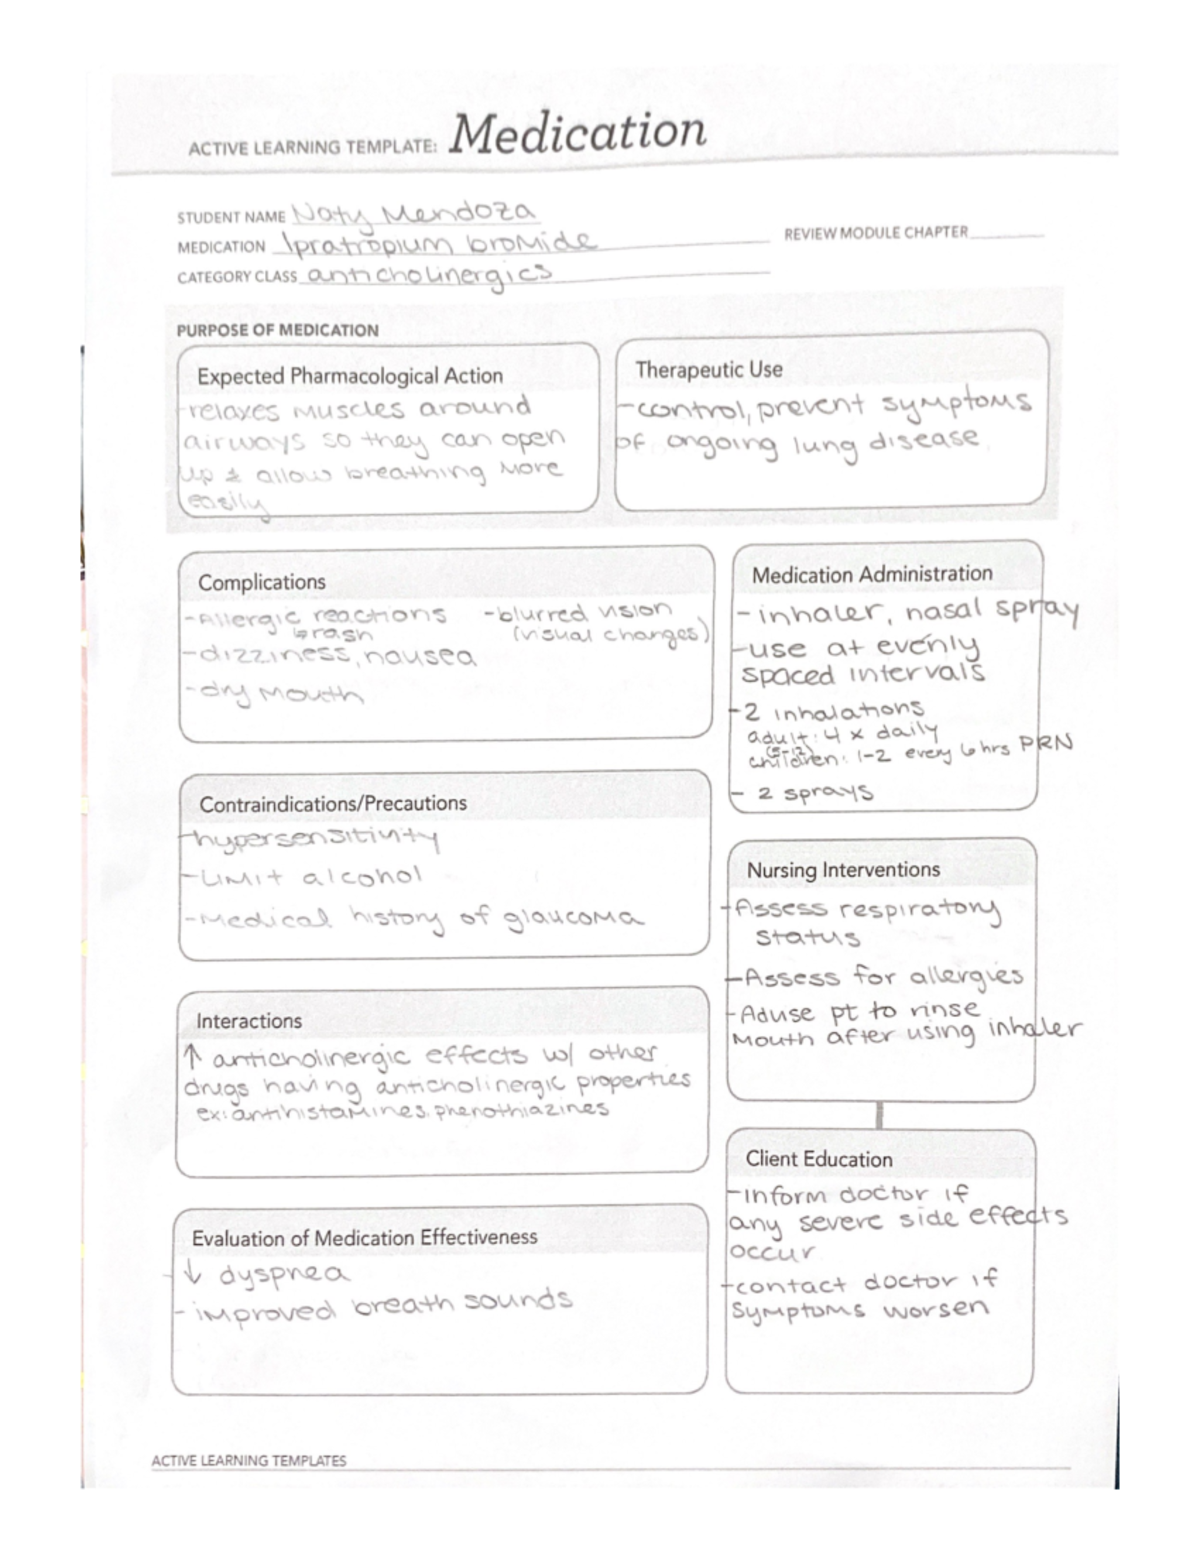 ACTIVE LEARNING TEMPLATE: Medication
STUDENT NAME Naty Mendoza
MEDICATION Ipratropium bromide
REVIEW MODULE CHAPTER
CATEGORY CLASS anticholinergics
PURPOSE OF MEDICATION
Expected Pharmacological Action
-relaxes muscles around
airways so they can open
up & allow breathing more
easily
Therapeutic Use
-control, prevent symptoms
of ongoing lung disease.
Complications
-Allergic reactions
↳rash
-dizziness, nausea
-dry mouth
-blurred vision
(visual changes)
Medication Administration
- inhaler, nasal spray
-use at evenly
spaced intervals
-2 inhalations
adult: 4 x daily
(5-12)
children: 1-2 every 6 hrs PRN
- 2 sprays
Contraindications/Precautions
-hypersensitivity
-Limit alcohol
-Medical history of glaucoma
Nursing Interventions
-Assess respiratory
status
-Assess for allergies
-Aduse pt to rinse
mouth after using inhaler
Interactions
↑ anticholinergic effects w/ other
drugs having anticholinergic properties
ex: antihistamines, phenothiazines
Client Education
-inform doctor if
any severe side effects
occur.
-contact doctor if
symptoms worsen
Evaluation of Medication Effectiveness
-↓ dyspnea
- improved breath sounds
ACTIVE LEARNING TEMPLATES